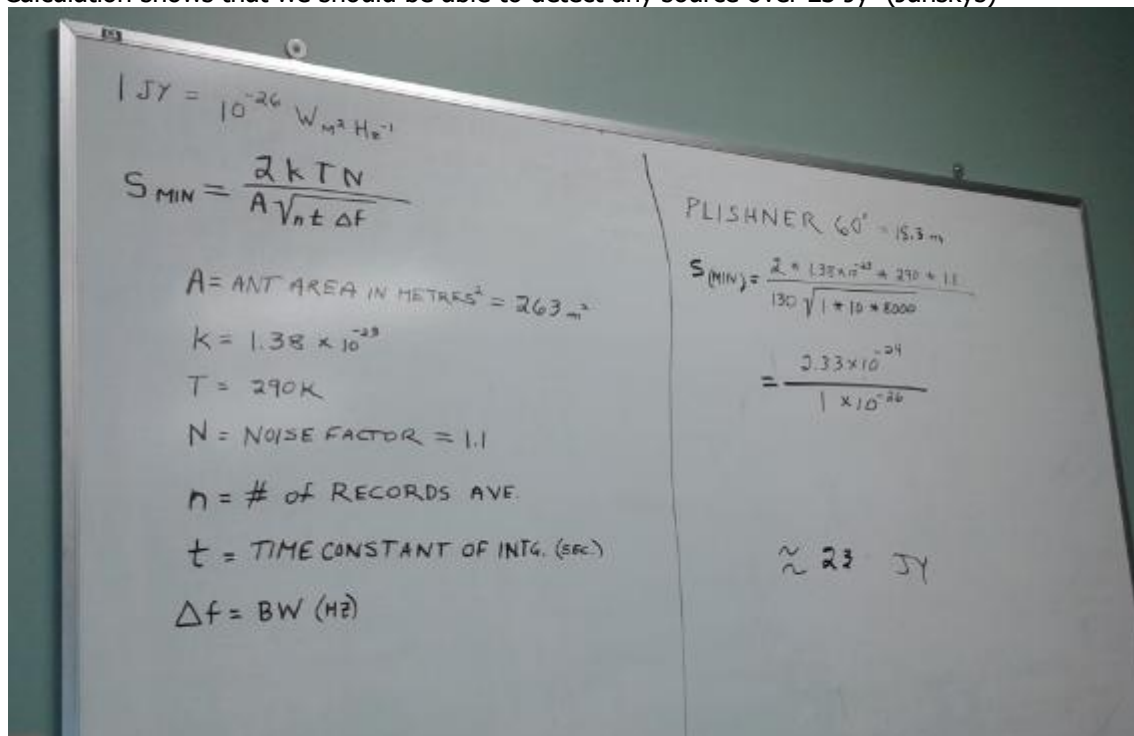 Calculation shows that we should be able to detect any source over 23 Jy (Janskys)
1 JY = 10⁻²⁶ W M² Hz⁻¹
S MIN = 2 k T N / A √ n t Δf
A = ANT AREA IN METRES² = 263 m²
k = 1.38 × 10⁻²³
T = 290K
N = NOISE FACTOR = 1.1
n = # of RECORDS AVE.
t = TIME CONSTANT OF INTG. (SEC.)
Δf = BW (HZ)
PLISHNER 60' = 18.3 m
S (MIN) = 2 * 1.38×10⁻²³ * 290 * 1.1 / 130 √ 1 * 10 * 8000
= 2.33×10⁻²⁴ / 1 × 10⁻²⁶
≈ 23 JY